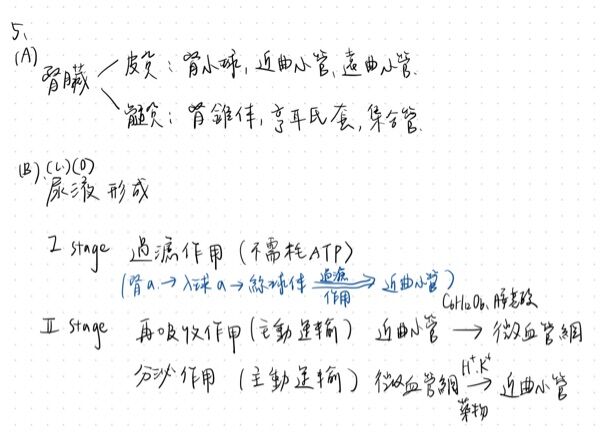 5.
(A)
腎臟
皮質：腎小球，近曲小管，遠曲小管.
髓質：腎錐体，亨耳氏套，集合管.
(B).(C)(D)
尿液形成
I stage 過濾作用（不需耗ATP）
（腎a.→入球a→絲球体 過濾作用→近曲小管）
C6H12O6, 胺基酸
II stage 再吸收作用（主動運輸） 近曲小管→微血管網
分泌作用（主動運輸） 微血管網 H⁺.K⁺ 藥物→近曲小管